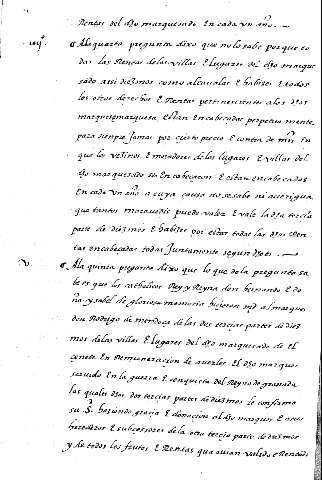 Rentas del dho marquesado En cada un año. —
iiijº. A la quarta pregunta dixo que no lo sabe porque to
das las Rentas delas villas E lugares del dho marque
sado assi diezmos como alcaualas E habizes E todos
los otros derechos E Rentas pertenescientes alos dhos
marques E marquesa Estan Encabezadas perpetua mente
para siempre Jamas por çierto preçio E contia de mrs En
que los vezinos E moradores de los lugares E villas del
dho marquesado se Encabeçaron E estan encabezadas
En cada un año a cuya causa no se sabe ni aberigua
que tantos marauedis puede valer E vale la dha terçia
parte de diezmos E habizes por estar todas las dhas Ren
tas encabezadas todas Juntamente segun dho es. —
v. A la quinta pregunta dixo que lo que de la pregunta sa
be es que los catholicos Rey y Reyna don hernando E do
ña ysabel de gloriosa memoria hizieron md al marques
don Rodrigo de mendoça de las dos terçias partes de diez
mos de las villas E lugares del dho marquesado de el
çenete En Remuneraçion de auerles El dho marques
seruido En la guerra E conquista del Reyno de granada
las quales dhas dos terçias partes de diezmos le confirmo
su Sd haziendo graçia E donaçion al dho marques E a sus
herederos E subcessores de la otra terçia parte de diezmos
y de todos los frutos E Rentas que auian valido E Rentado